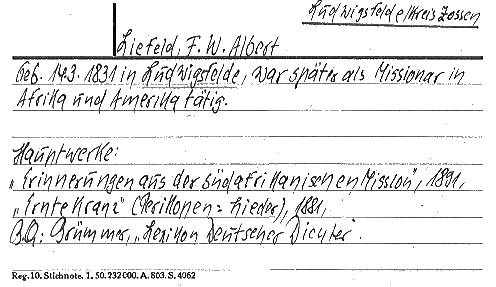 Ludwigsfelde/Kreis Zossen
Liefeld, F. W. Albert
Geb. 14.3. 1831 in Ludwigsfelde, war später als Missionar in
Afrika und Amerika tätig.
Hauptwerke:
„Erinnerungen aus der südafrikanischen Mission", 1891,
„Erntekranz" (Perikopen = Lieder), 1881,
B.Q.: Brümmer, „Lexikon Deutscher Dichter".
Reg. 10. Stichnote. 1. 50. 232000. A. 803. S. 4062